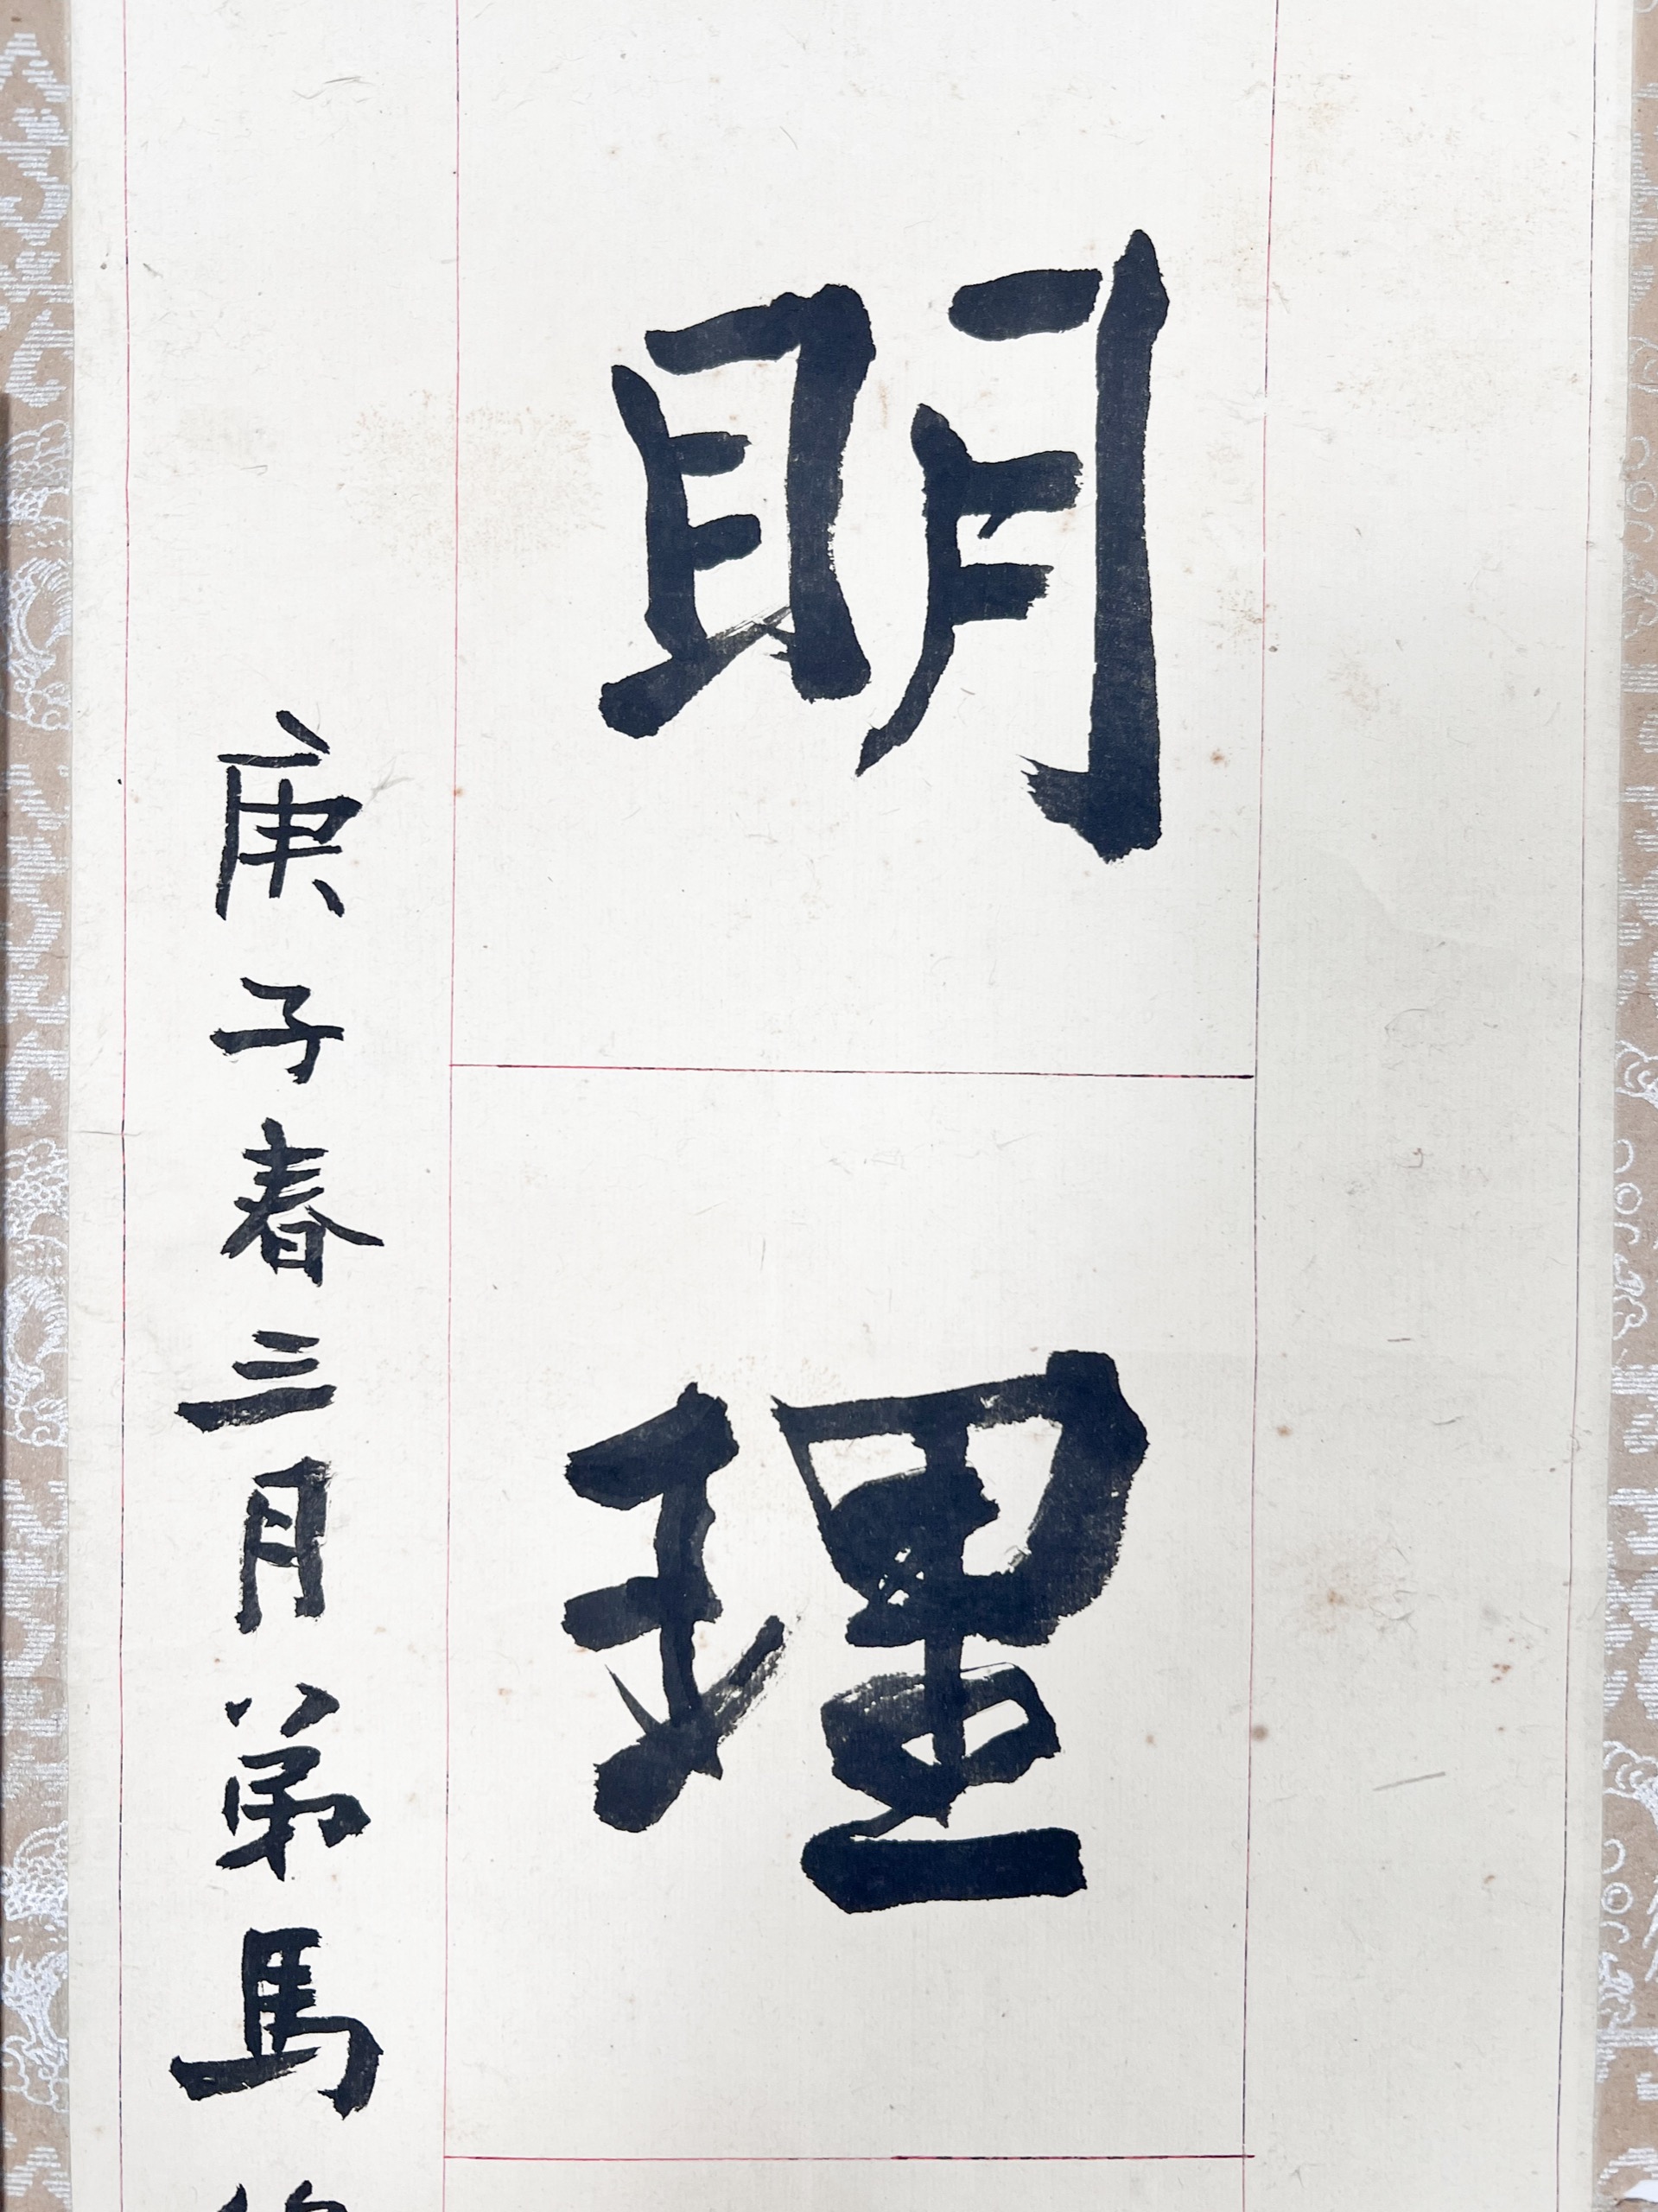 明理
庚子春三月弟馬